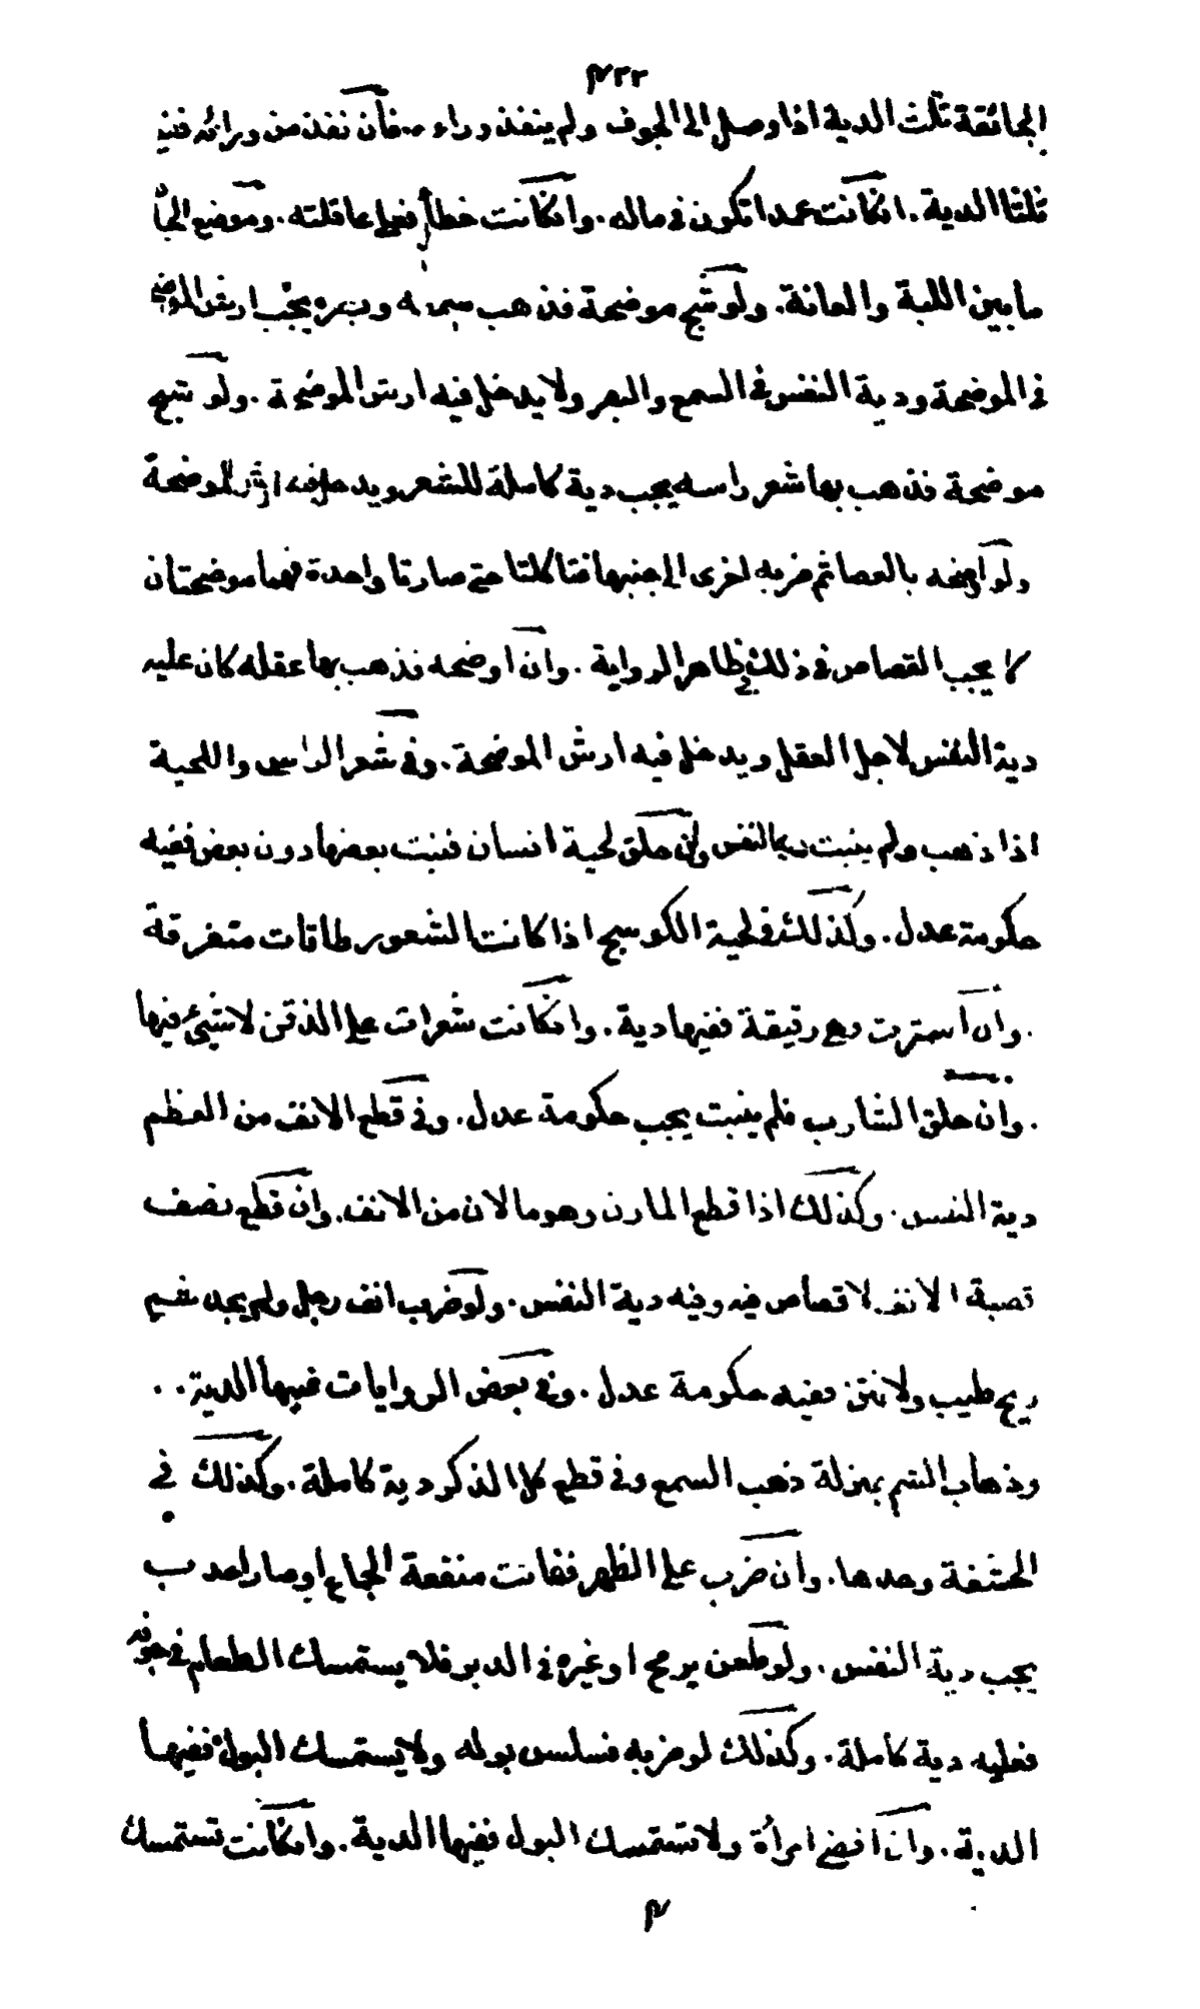 ٤٣٢
الجائفة ثلث الدية اذا وصل الى الجوف ولم ينفذ وراءه. فان نفذ من ورائه ففيه
ثلثا الدية. انكانت عمدا تكون فى ماله. وانكانت خطأ فعلى عاقلته. وموضع الجا
ما بين اللبة والعانة. ولو شج موضحة فذهب سمعه وبصره يجب ارش الموضحة
فى الموضحة ودية النفس فى السمع والبصر ولا يدخل فيه ارش الموضحة. ولو شج
موضحة فذهب بها شعر راسه يجب دية كاملة للشعر ويدخل فيه ارش الموضحة
ولو اوضحه بالعصا ثم ضربه اخرى الى جنبها فتاكلتا حتى صارتا واحدة فهما موضحتان
لا يجب القصاص فى ذلك فى ظاهر الرواية. وان اوضحه فذهب بها عقله كان عليه
دية النفس لاجل العقل ويدخل فيه ارش الموضحة. وفى شعر الراس واللحية
اذا ذهب ولم ينبت دية النفس ولو حلق لحية انسان فنبت بعضها دون بعض ففيه
حكومة عدل. وكذلك فى لحية الكوسج اذا كانت الشعور طاقات متفرقة
. وان استرت وهى رقيقة ففيها دية. وانكانت شعرات على الذقن لا شئ فيها
. وان حلق الشارب فلم ينبت يجب حكومة عدل. وفى قطع الانف من العظم
دية النفس. وكذلك اذا قطع المارن وهو ما لان من الانف. وان قطع نصف
قصبة الانف لا قصاص فيه وفيه دية النفس. ولو ضرب انف رجل ولم يجد شميم
ريح طيب ولا نتن ففيه حكومة عدل. وفى بعض الروايات فيها الدية. .
وذهاب الشم بمنزلة ذهب السمع وفى قطع كل الذكر دية كاملة. وكذلك فى
الحشفة وحدها. وان ضرب على الظهر ففاتت منفعة الجماع او صار احدب
يجب دية النفس. ولو طعن برمح او غيره فى الدبر فلا يستمسك الطعام فى جوفه
فعليه دية كاملة. وكذلك لو ضربه فسلس بوله ولا يستمسك البول ففيها
الدية. وان افضى امرأة ولا تستمسك البول ففيها الدية. وانكانت تستمسك